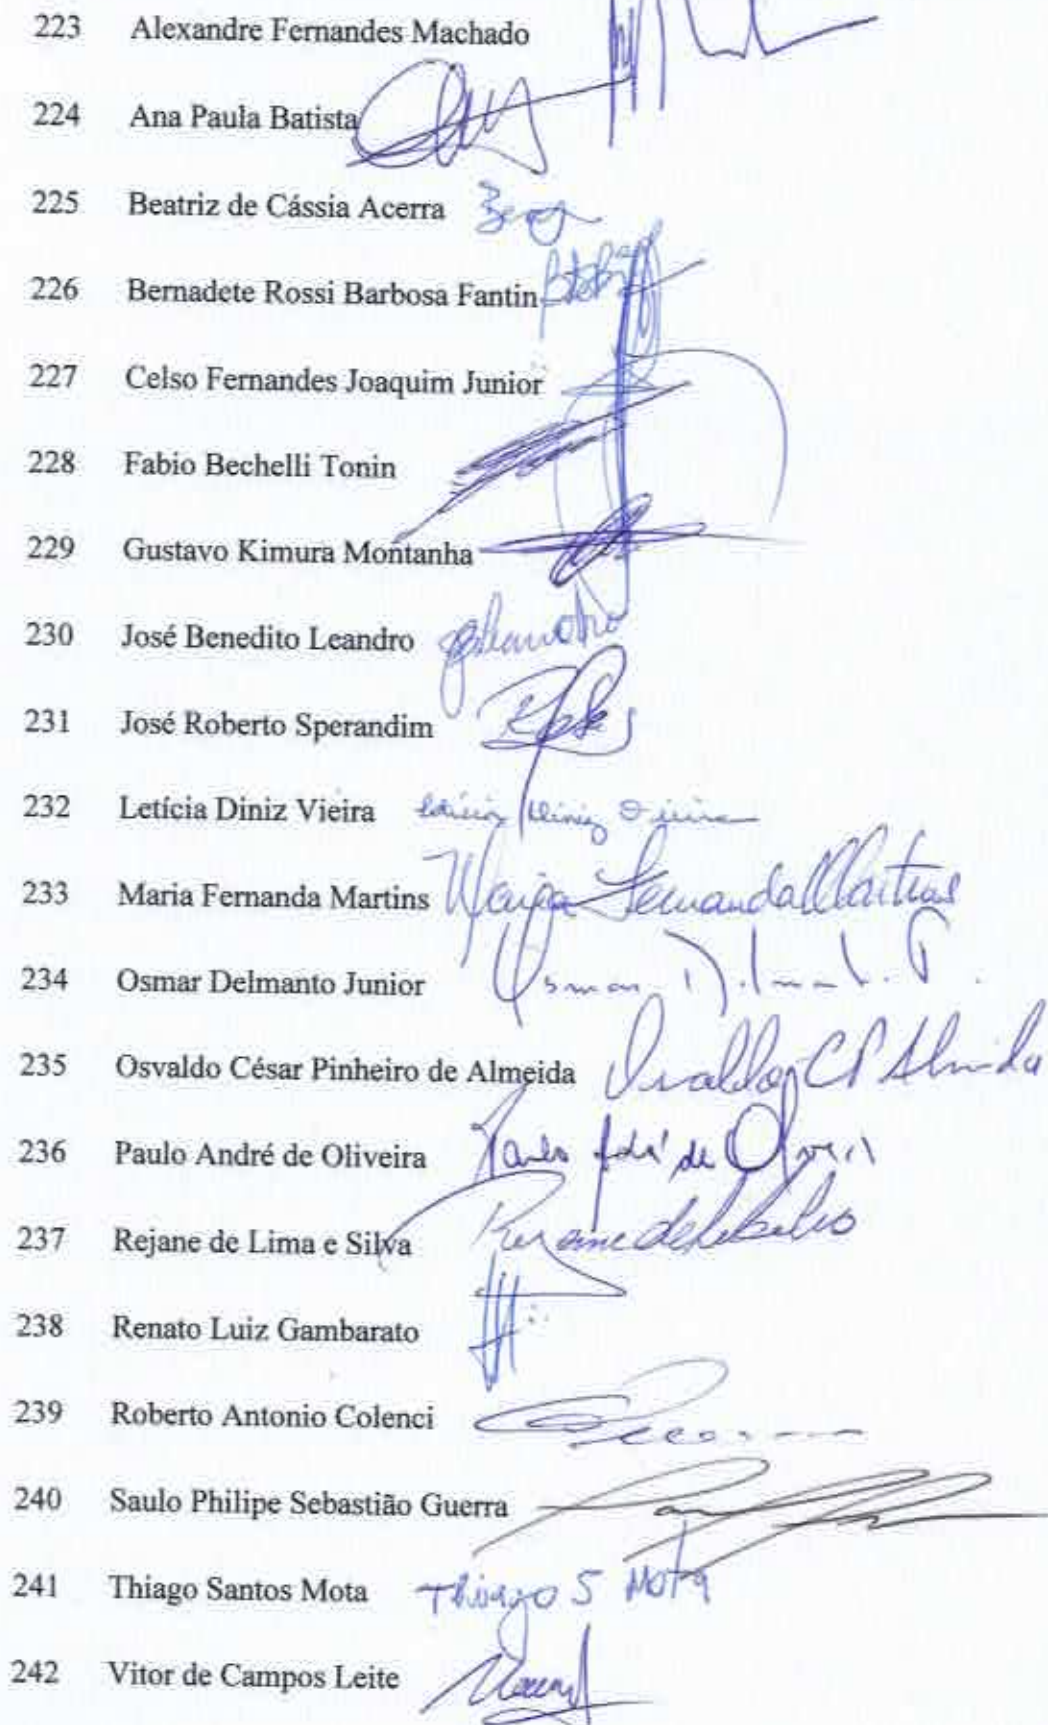 223 Alexandre Fernandes Machado
224 Ana Paula Batista
225 Beatriz de Cássia Acerra
226 Bernadete Rossi Barbosa Fantin
227 Celso Fernandes Joaquim Junior
228 Fabio Bechelli Tonin
229 Gustavo Kimura Montanha
230 José Benedito Leandro
231 José Roberto Sperandim
232 Letícia Diniz Vieira
233 Maria Fernanda Martins Maria Fernanda Martins
234 Osmar Delmanto Junior Osmar
235 Osvaldo César Pinheiro de Almeida Osvaldo CP Almeida
236 Paulo André de Oliveira Paulo André de Oliveira
237 Rejane de Lima e Silva
238 Renato Luiz Gambarato
239 Roberto Antonio Colenci
240 Saulo Philipe Sebastião Guerra
241 Thiago Santos Mota Thiago S Mota
242 Vitor de Campos Leite